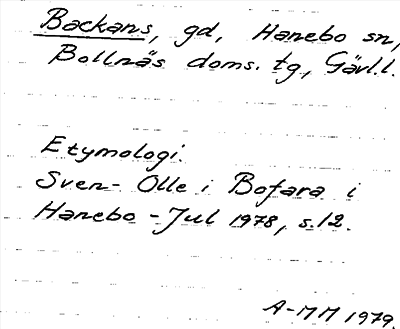 Backans, gd, Hanebo sn,
Bollnäs doms. tg, Gävl.l.
Etymologi.
Sven-Olle i Bofara i
Hanebo-Jul 1978, s.12.
A-MM 1979.